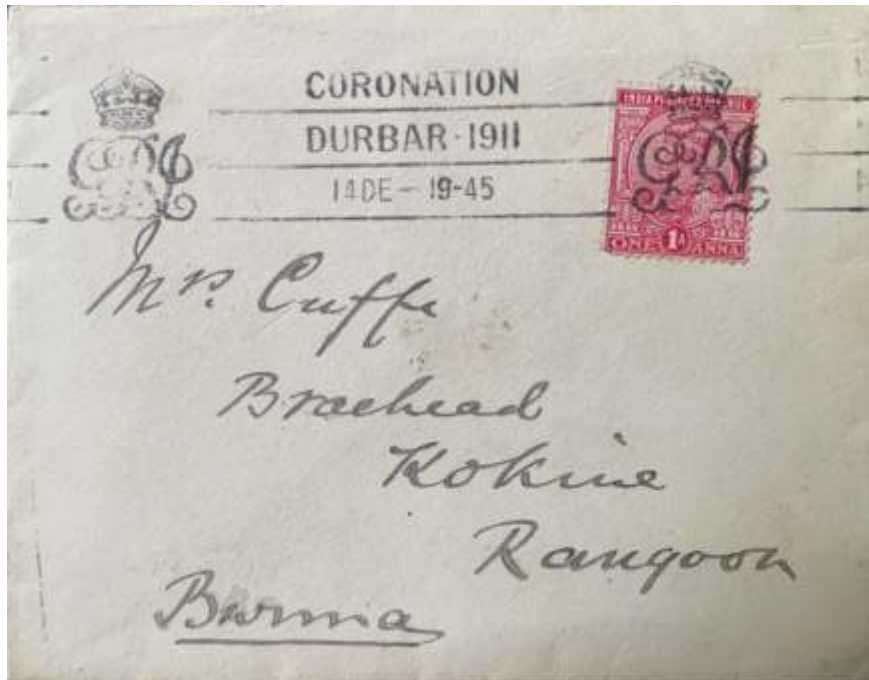 CORONATION
DURBAR · 1911
14 DE – 19-45
INDIA POSTAGE
ONE 1A ANNA
Mrs. Cuffe
Braehead
Kokine
Rangoon
Burma